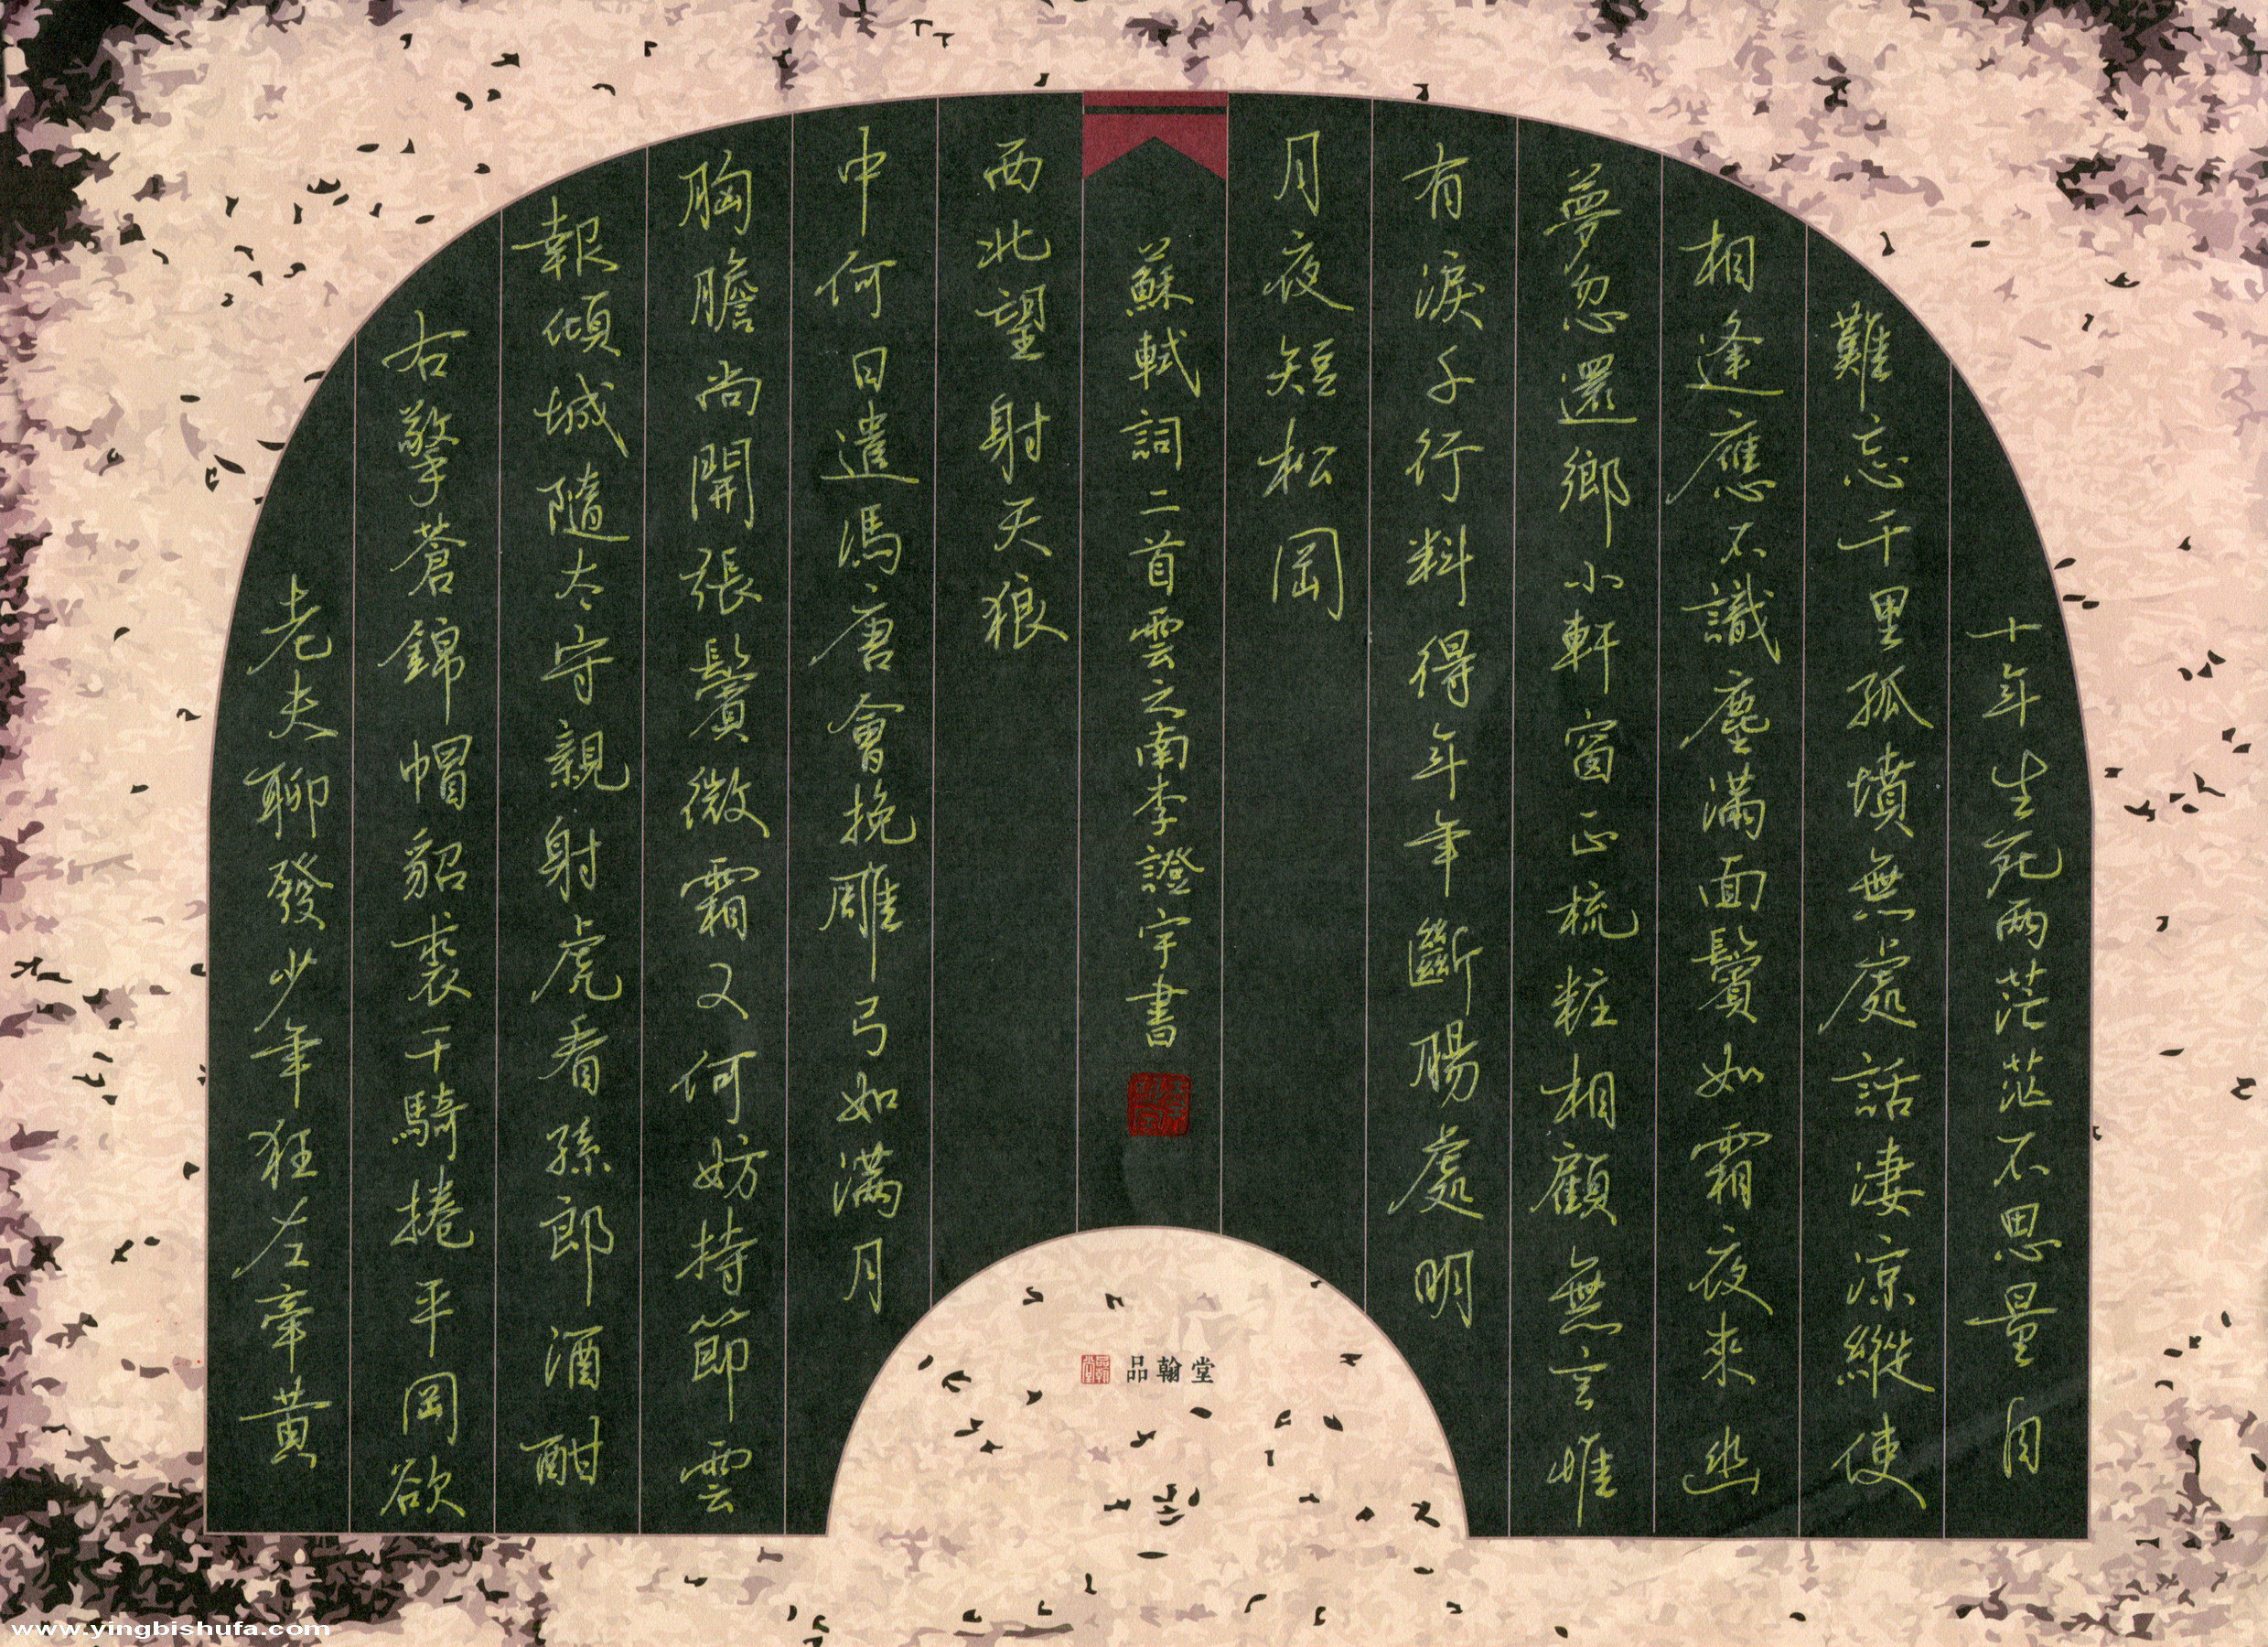 十年生死兩茫茫不思量自
難忘千里孤墳無處話淒涼縱使
相逢應不識塵滿面鬢如霜夜來幽
夢忽還鄉小軒窗正梳粧相顧無言惟
有淚千行料得年年斷腸處明
月夜短松岡
老夫聊發少年狂左牽黃
右擎蒼錦帽貂裘千騎捲平岡欲
報傾城隨太守親射虎看孫郎酒酣
胸膽尚開張鬢微霜又何妨持節雲
中何日遣馮唐會挽雕弓如滿月
西北望射天狼
蘇軾詞二首雲之南李證宇書
品翰堂
www.yingbishufa.com